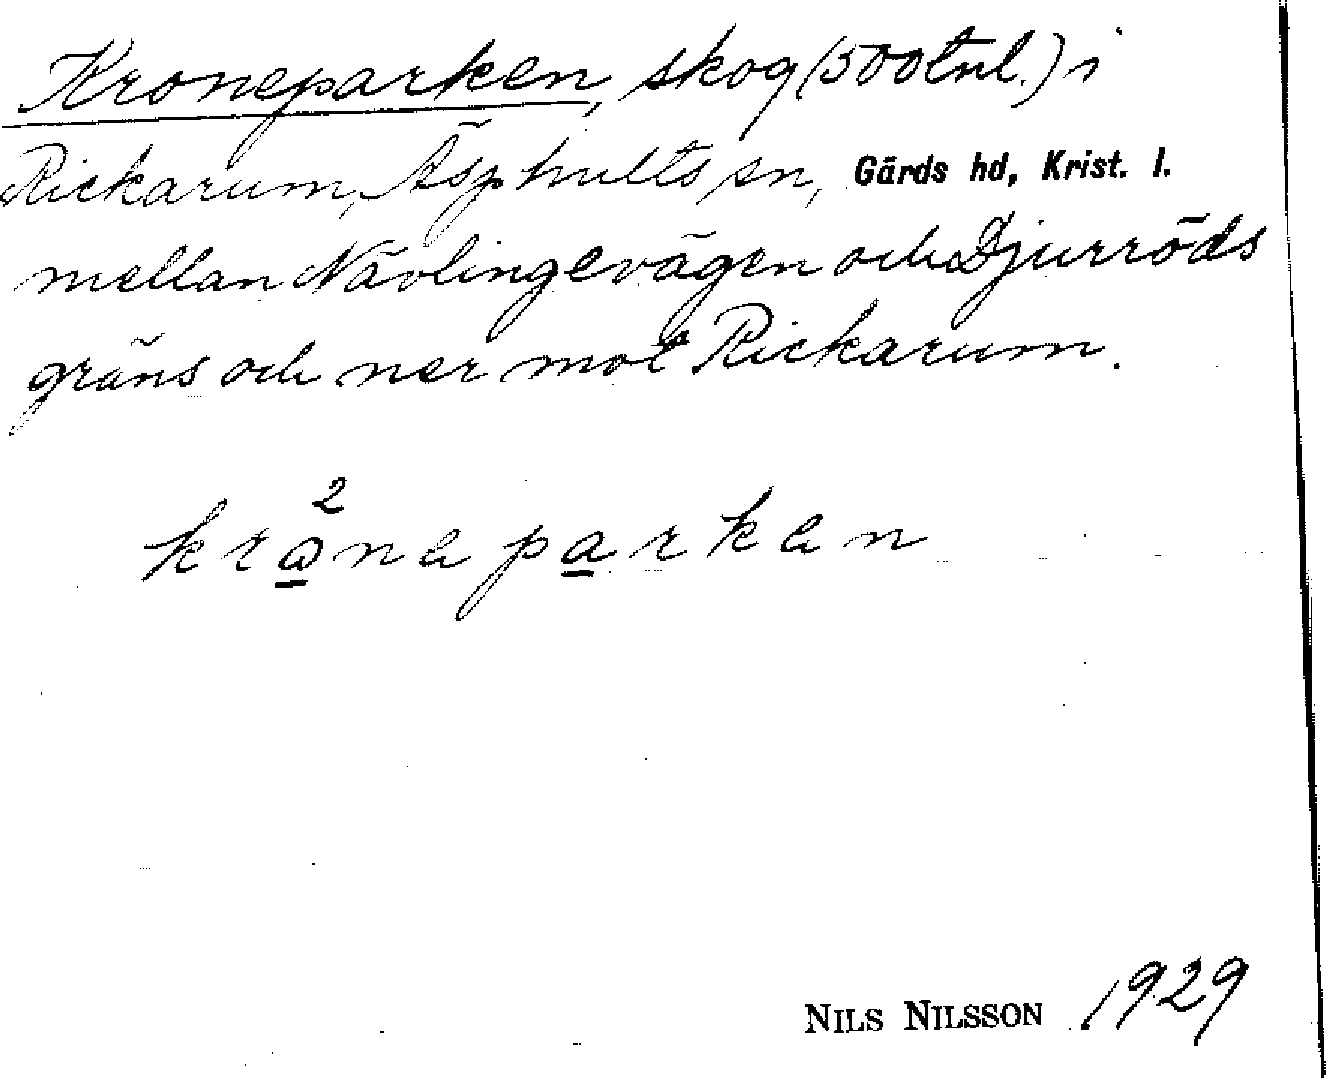 Kroneparken, skog (500 tnl.) i
Rickarum, Äsphults sn, Gärds hd, Krist. l.
mellan Nävlingevägen och Djurröds
gräns och ner mot Rickarum.
2
kroneparken
NILS NILSSON 1929